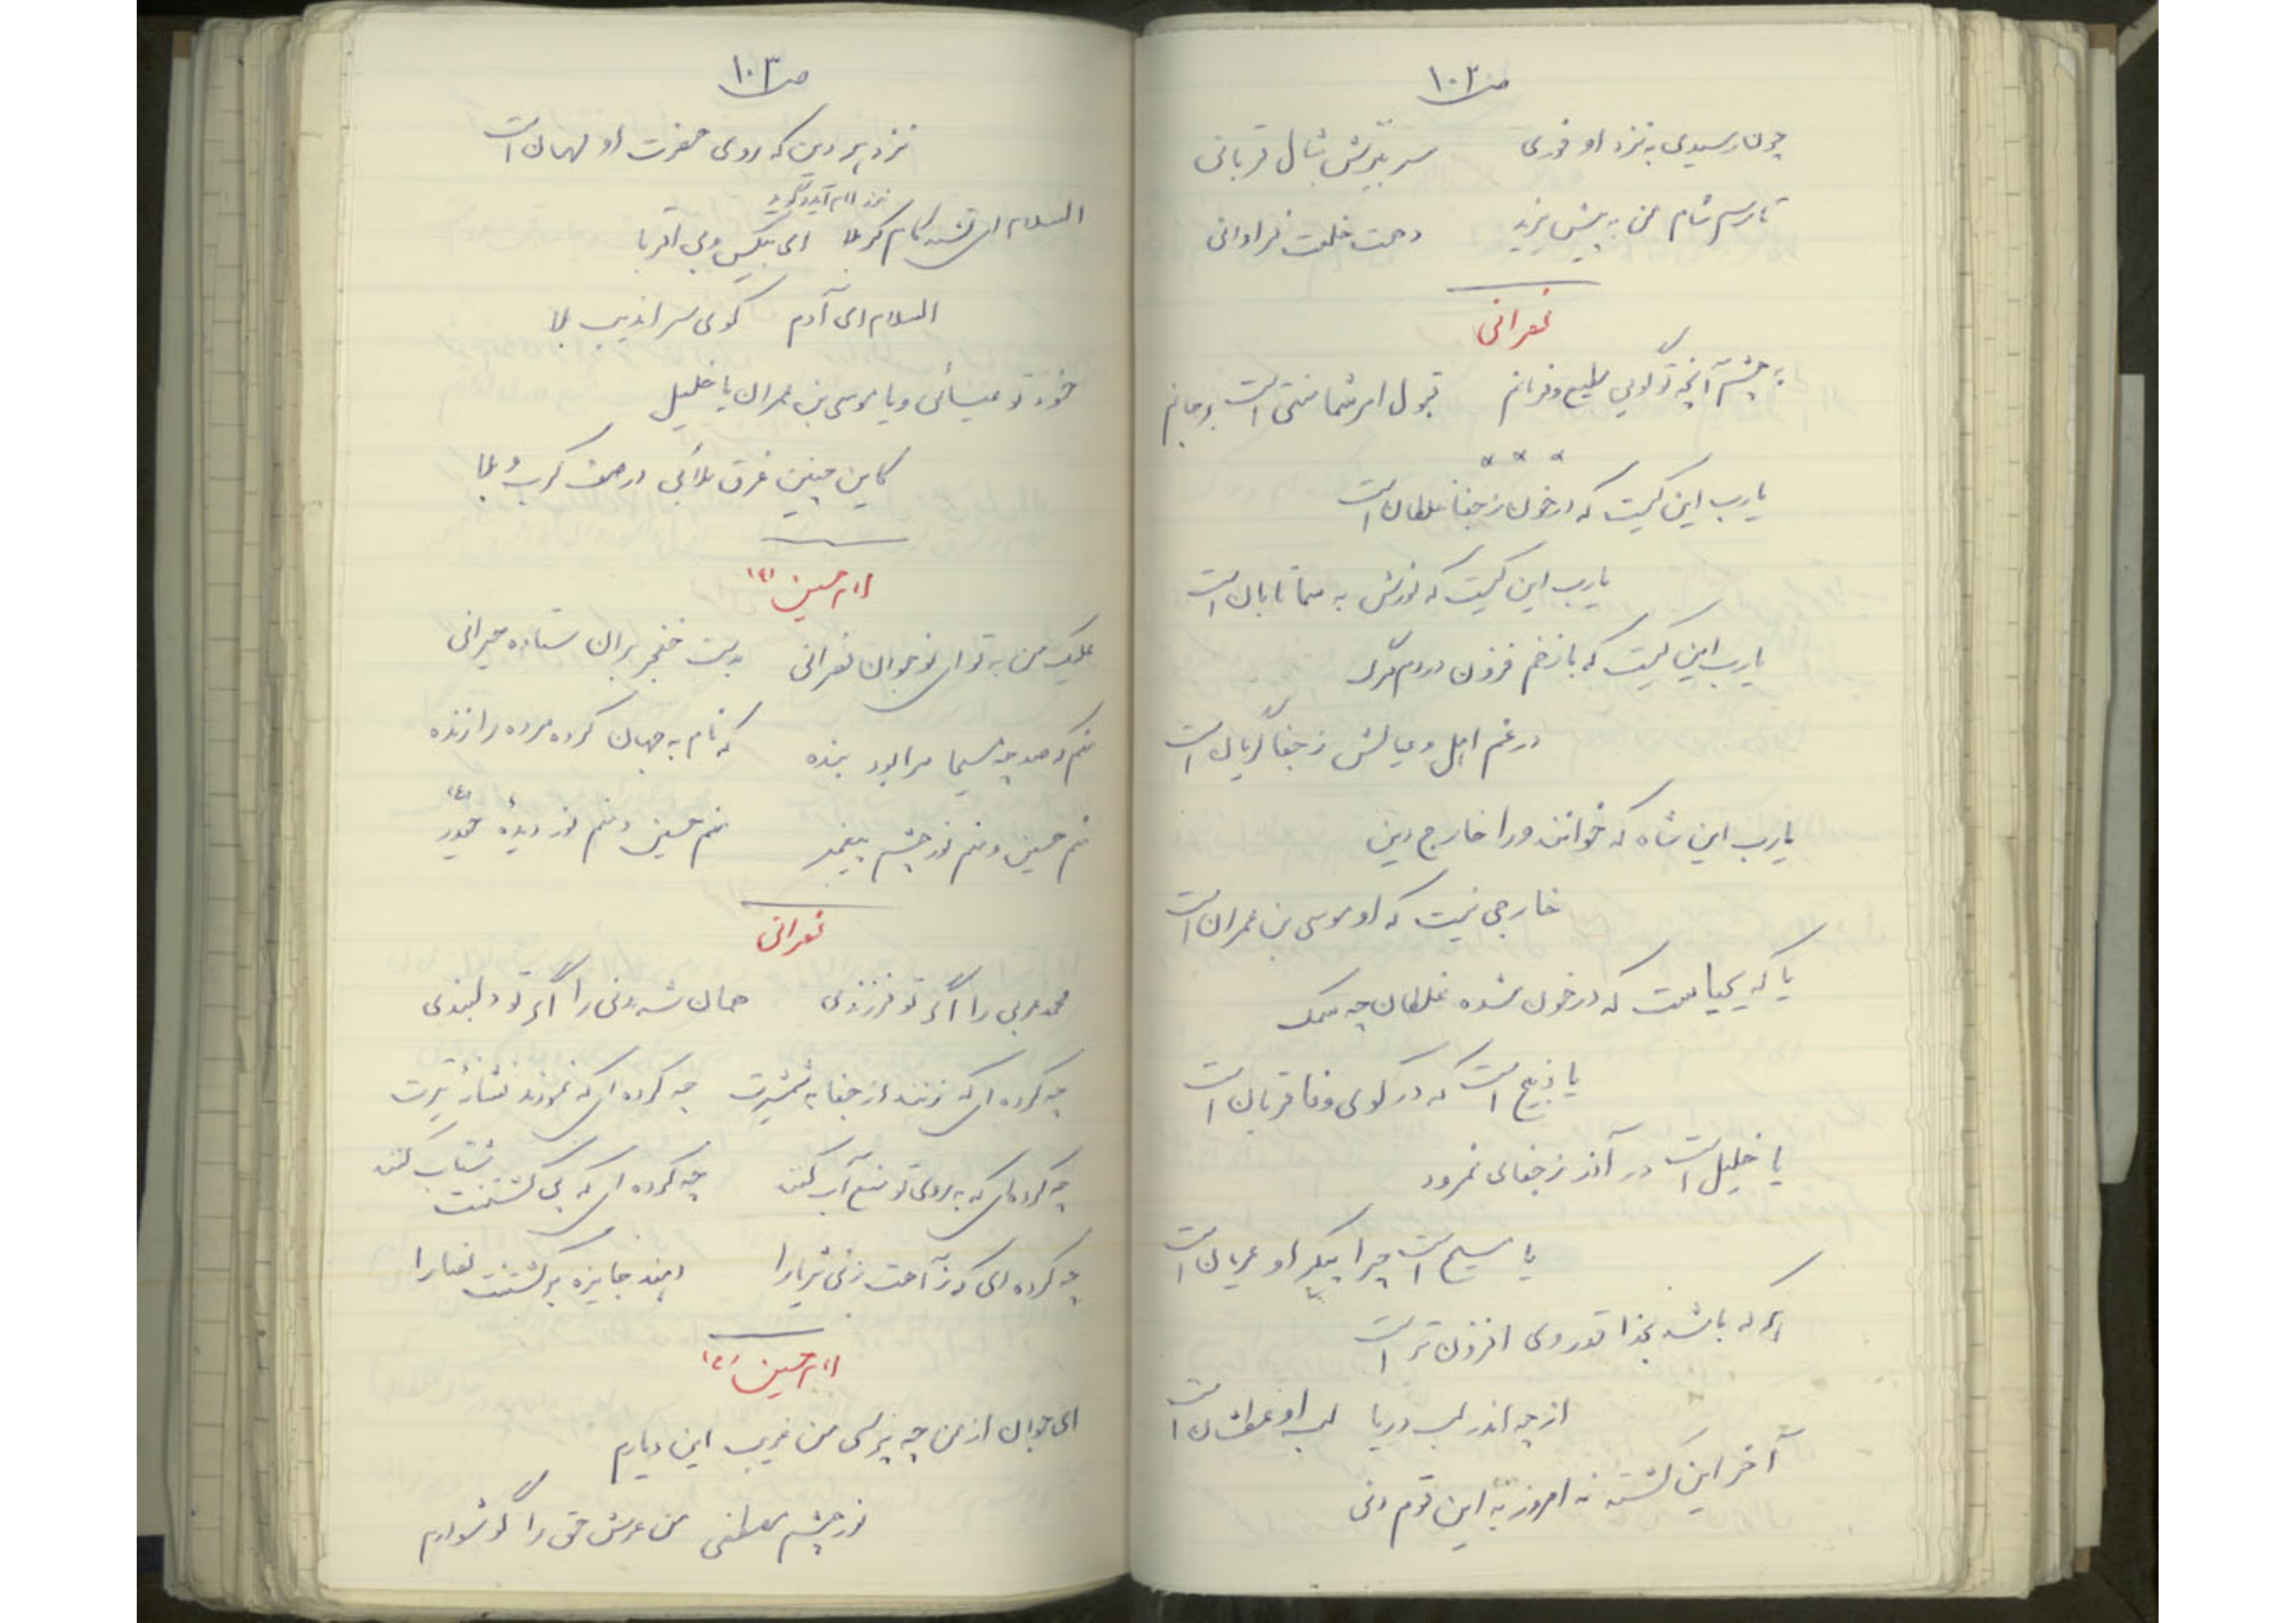 ص ۱۰۲
چون رسیدی به نزد او فوری سر ببرش بشال قربانی
تا رسم شام من به پیش یزید دهمت خلعت فراوانی
نصرانی
به چشم آنچه تو گویی مطیع و فرمانم قبول امر شما منتی است بر جانم
یا رب این کیست که در خون ز جفا غلطان است
یا رب این کیست که نورش به سما تابان است
یا رب این کیست که با زخم فزون در دم مرگ
در غم اهل و عیالش ز جفا گریان است
یا رب این شاه که خوانند ورا خارج دین
خارجی نیست که او موسی بن عمران است
یا که یحیاست که در خون شده غلطان چه سمک
یا ذبیح است که در کوی وفا قربان است
یا خلیل است در آذر ز جفای نمرود
یا مسیح است چرا پیکر او عریان است
هر که باشد بخدا قدر وی افزون تر است
از چه اندر لب دریا لب او عطشان است
آخر این کشته نه امروز به این قوم دنی
ص ۱۰۳
نزد هر دین که روی حضرت او مهمان است
نزد امام آید و گوید
السلام ای تشنه کام کربلا ای بیکس و بی اقربا
السلام ای آدم کوی سراندیب بلا
خود تو عیسائی و یا موسی بن عمران یا خلیل
کاین چنین غرق بلائی در صف کرب و بلا
امام حسین (ع)
علیک من به تو ای نوجوان نصرانی بدست خنجر بران ستاده حیرانی
منم که صد چه مسیحا مرا بود بنده که نام به جهان کرده مرده را زنده
منم حسین و منم نور چشم پیغمبر منم حسین و منم نور دیدهٔ حیدر (ع)
نصرانی
محمد عربی را اگر تو فرزندی همان شه دنی را اگر تو دلبندی
چه کرده ای که زنند از جفا به شمشیرت چه کرده ای که نمودند نشانهٔ تیرت
چه کرده ای که به روی تو منع آب کنند چه کرده ای که پی کشتنت شتاب کنند
چه کرده ای که ز آهت زنی ثریا را دهند جایزه بر کشتنت نصارا را
امام حسین (ع)
ای جوان از من چه پرسی من غریب این دیارم
نور چشم مصطفی من عرش حق را گوشوارم